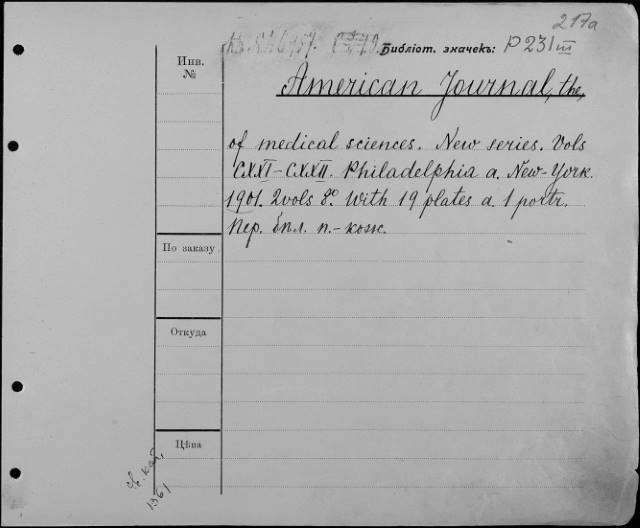 217a
Библіот. значекъ: P231 III
Инв.
№
American Journal, the,
of medical sciences. New series. Vols
CXXI–CXXII. Philadelphia a. New-York.
1901. 2vols 8º. With 19 plates a. 1 portr.
Пер. бпл. п.-кож.
По заказу
Откуда
Цѣна
кат.
1961